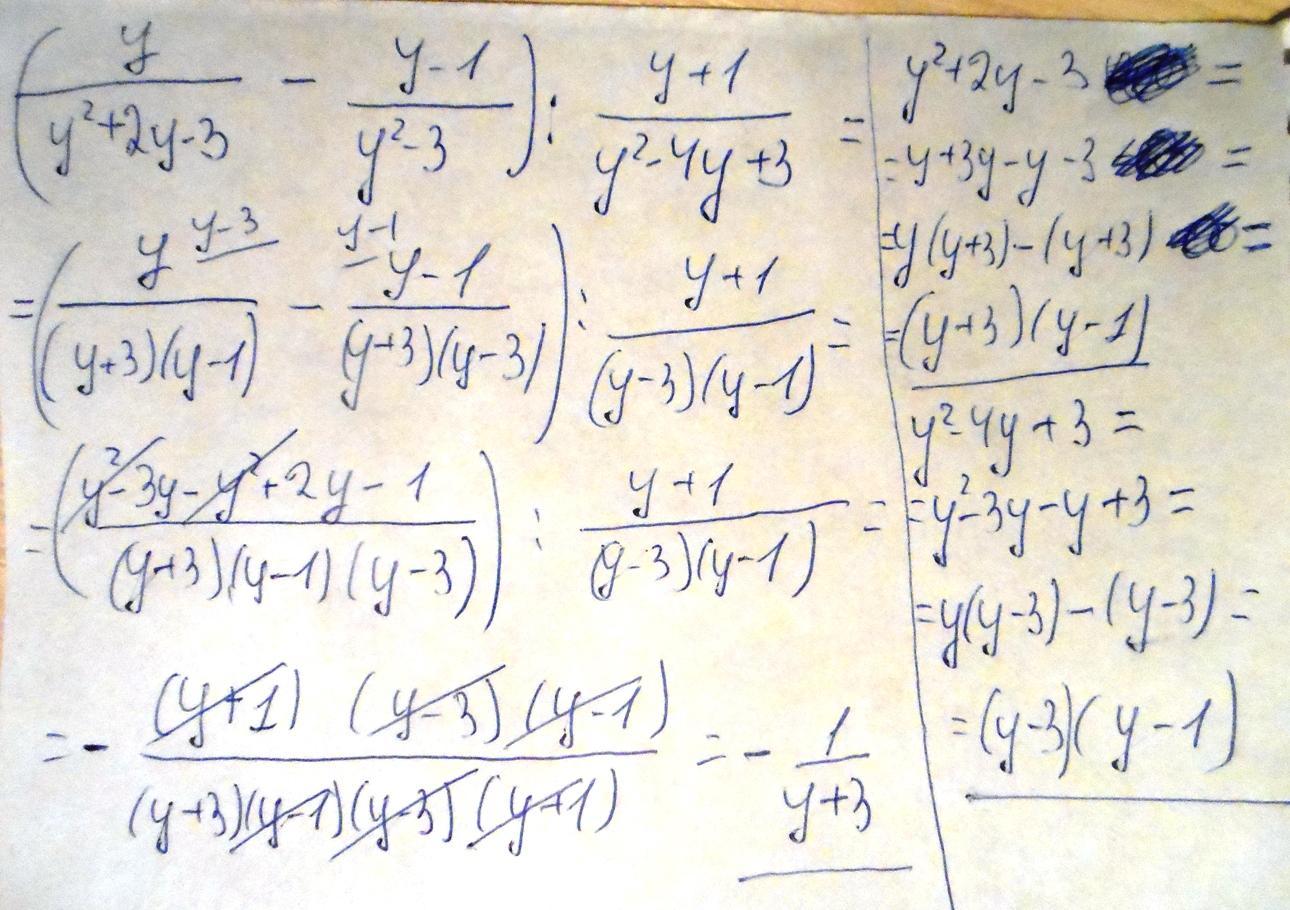 (y/(y²+2y-3) - (y-1)/(y²-3)) : (y+1)/(y²-4y+3) =
=(y/((y+3)(y-1)) y-3 - y-1 (y-1)/((y+3)(y-3))) : (y+1)/((y-3)(y-1)) =
=((y²-3y-y²+2y-1)/((y+3)(y-1)(y-3))) : (y+1)/((y-3)(y-1)) =
=-((y+1)(y-3)(y-1))/((y+3)(y-1)(y-3)(y+1)) = -1/(y+3)
y²+2y-3 =
=y+3y-y-3 =
=y(y+3)-(y+3) =
=(y+3)(y-1)
y²-4y+3=
=y²-3y-y+3=
=y(y-3)-(y-3)=
=(y-3)(y-1)